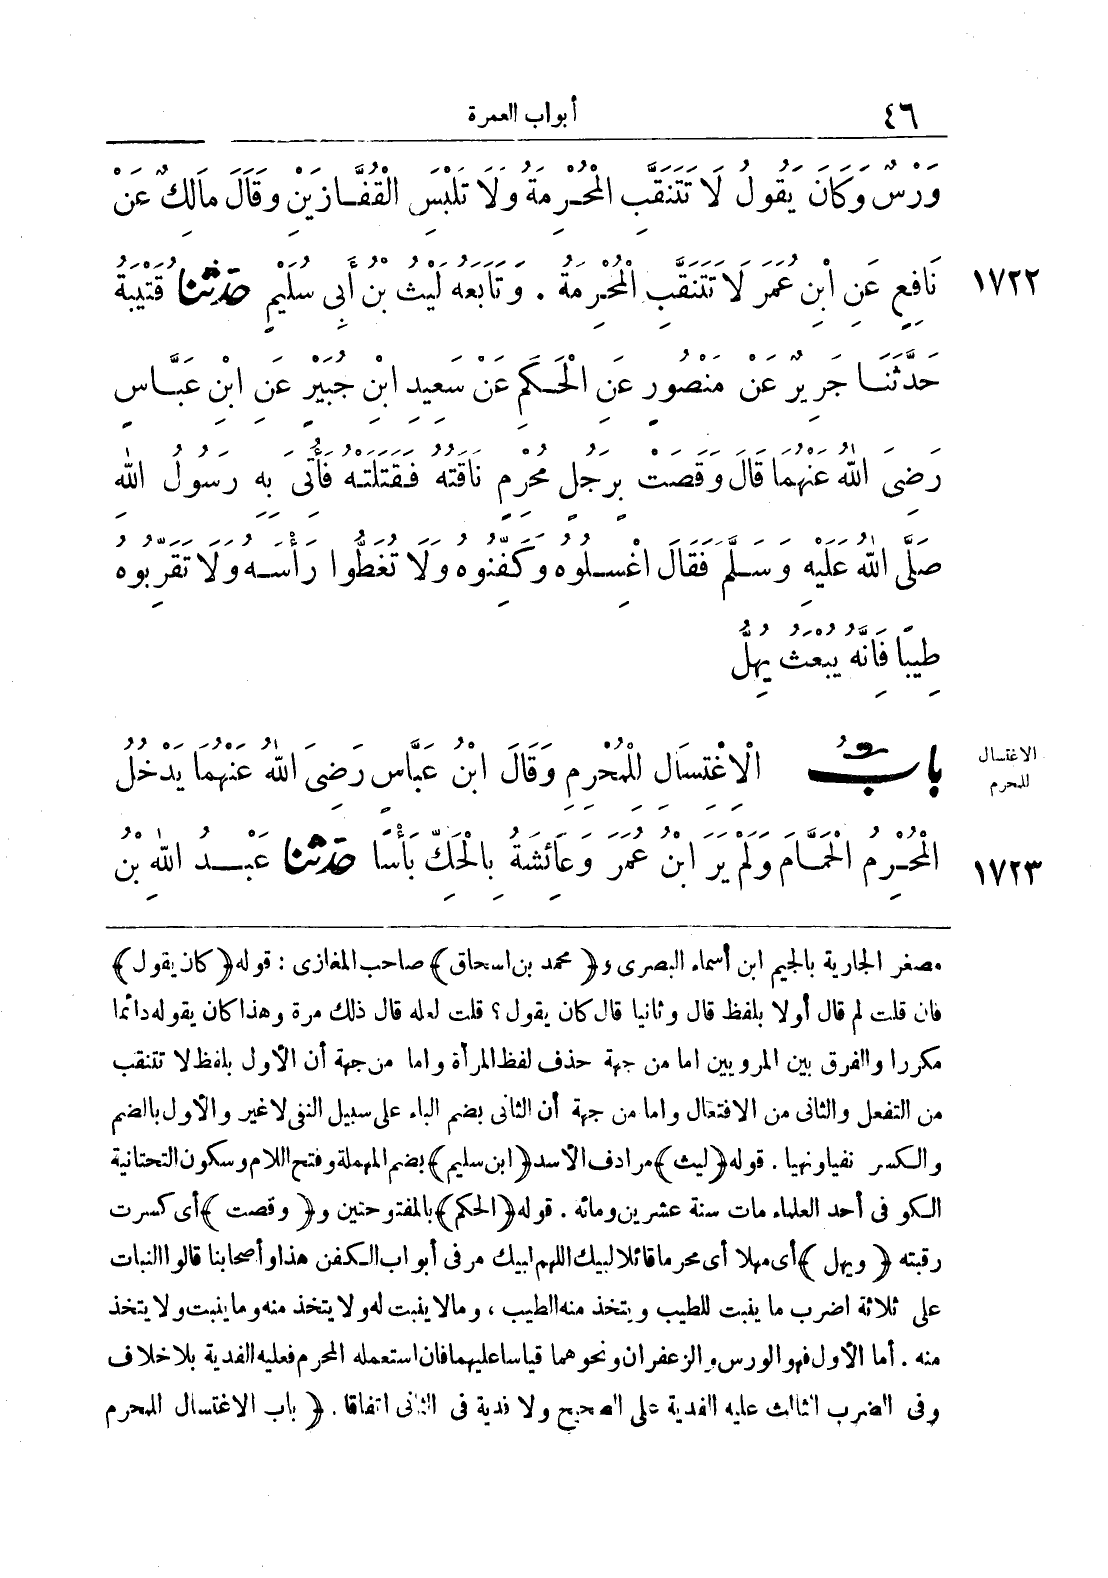 ٤٦ أبواب العمرة
وَرْسٌ وَكَانَ يَقُولُ لَا تَتَنَقَّبِ الْمُحْرِمَةُ وَلَا تَلْبَسِ الْقُفَّازَيْنِ وَقَالَ مَالِكٌ عَنْ
١٧٢٢ نَافِعٍ عَنِ ابْنِ عُمَرَ لَا تَتَنَقَّبِ الْمُحْرِمَةُ . وَتَابَعَهُ لَيْثُ بْنُ أَبِي سُلَيْمٍ حَدَّثَنَا قُتَيْبَةُ
حَدَّثَنَا جَرِيرٌ عَنْ مَنْصُورٍ عَنِ الْحَكَمِ عَنْ سَعِيدِ ابْنِ جُبَيْرٍ عَنِ ابْنِ عَبَّاسٍ
رَضِىَ اللهُ عَنْهُمَا قَالَ وَقَصَتْ بِرَجُلٍ مُحْرِمٍ نَاقَتُهُ فَقَتَلَتْهُ فَأُتِىَ بِهِ رَسُولُ اللهِ
صَلَّى اللهُ عَلَيْهِ وَسَلَّمَ فَقَالَ اغْسِلُوهُ وَكَفِّنُوهُ وَلَا تُغَطُّوا رَأْسَهُ وَلَا تُقَرِّبُوهُ
طِيبًا فَإِنَّهُ يُبْعَثُ يُهِلُّ
الاغتسال للمحرم
بَابُ الْاِغْتِسَالِ لِلْمُحْرِمِ وَقَالَ ابْنُ عَبَّاسٍ رَضِىَ اللهُ عَنْهُمَا يَدْخُلُ
١٧٢٣ الْمُحْرِمُ الْحَمَّامَ وَلَمْ يَرَ ابْنُ عُمَرَ وَعَائِشَةُ بِالْحَكِّ بَأْسًا حَدَّثَنَا عَبْدُ اللهِ بْنُ
مصغر الجارية بالجيم ابن أسماء البصرى و﴿محمد بن اسحاق﴾ صاحب المغازى : قوله ﴿كان يقول﴾
فان قلت لم قال أولا بلفظ قال وثانيا قال كان يقول ؟ قلت لعله قال ذلك مرة وهذا كان يقوله دائما
مكررا والفرق بين المرويين اما من جهة حذف لفظ المرأة واما من جهة أن الأول بلفظ لا تتنقب
من التفعل والثانى من الافتعال واما من جهة أن الثانى بضم الباء على سبيل النفى لا غير والأول بالضم
والكسر نفيا ونهيا . قوله ﴿ليث﴾ مرادف الأسد ﴿ابن سليم﴾ بضم المهملة وفتح اللام وسكون التحتانية
الكوفى أحد العلماء مات سنة عشرين ومائه . قوله ﴿الحكم﴾ بالمفتوحتين و﴿وقصت﴾ أى كسرت
رقبته ﴿ويهل﴾ أى مهلا أى محرما قائلا لبيك اللهم لبيك مر فى أبواب الكفن هذا وأصحابنا قالوا النبات
على ثلاثة اضرب ما ينبت للطيب ويتخذ منه الطيب ، ومالا ينبت له ولا يتخذ منه وما ينبت ولا يتخذ
منه . أما الأول فهو الورس والزعفران ونحوهما قياسا عليهما فان استعمله المحرم فعليه الفدية بلا خلاف
وفى الضرب الثالث عليه الفدية على الصحيح ولا فدية فى الثانى اتفاقا . ﴿باب الاغتسال للمحرم